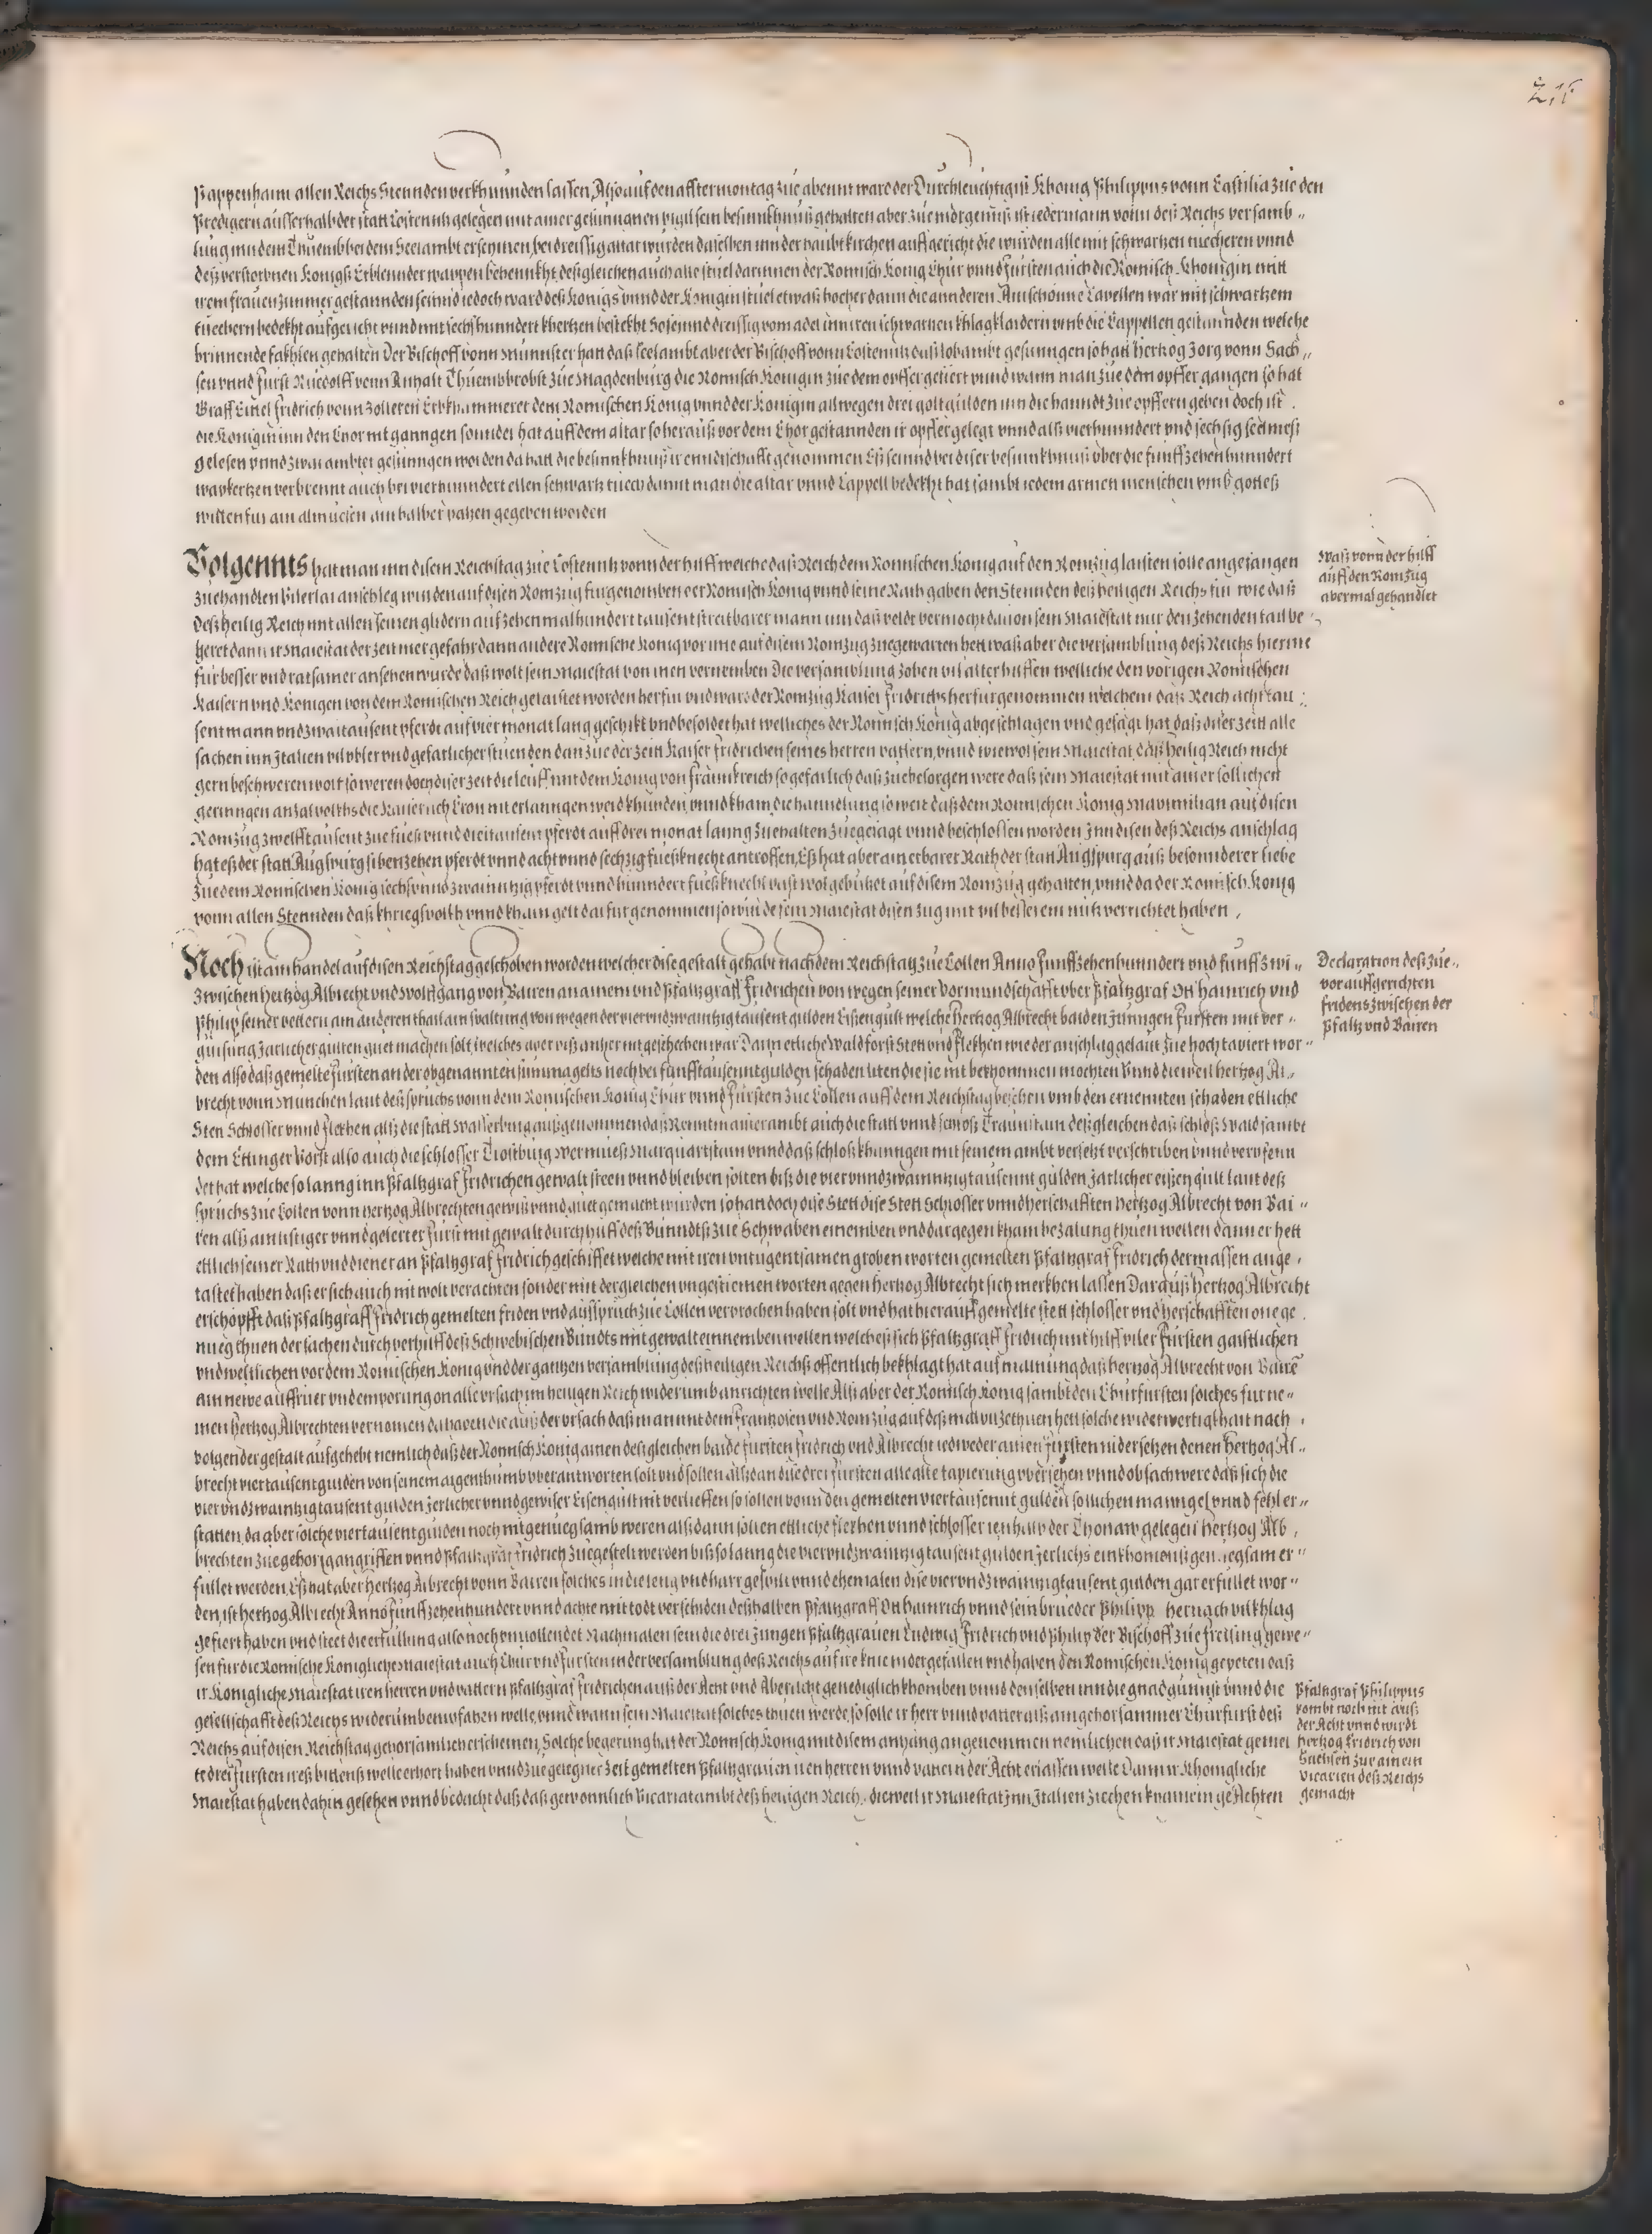 Pappenhaim allen Reichs Stennden verkhunnden lassen, Also auf den afftermontag zue abennt ware der Durchleuchtigist Khonig Philippus vonn Castilia zue den
Predigern ausserhalb der statt Costennitz gelegen mit ainer gesunngnen vigil sein besinkhnus gehalten aber zue morgenns ist iedermann vonn deß Reichs versamb„
lung inn dem Thuemb bei dem Seelambt erschinen, bei dreissig altar wurden daselben inn der haubt kirchen auffgericht die wurden alle mit schwartzen tuecheren vnnd
deß verstorbnen Konigs Erblennder wappen behennkht desgleichen auch alle stuel darinnen der Romisch Konig Chur vnnd Fursten auch die Romisch Khonigin mitt
irem frauenzimmer gestannden seinnd iedoch ward deß Konigs vnnd der Konigin stuel etwaß hocher dann die annderen. Ain schonne Capellen war mit schwartzem
tuechern bedekht aufgericht vnnd mit sechshunndert khertzen bestekht So seinnd dreissig vom adel inn iren schwartzen khlagklaidern vmb die Cappellen gestannden welche
brinnende fakhlen gehalten Der Bischoff vonn Munnster hatt daß seelambt aber der Bischoff vonn Costennitz daß lobambt gesunngen so hatt Hertzog Jorg vonn Sach„
sen vnnd Furst Ruedolff vonn Anhalt Thuembbrobst zue Magdenburg die Romisch Konigin zue dem opffer gefiert vnnd wann man zue dem opffer gangen so hat
Graff Eitel Fridrich vonn Zolleren Erbkhammerer dem Romischen Konig vnnd der Konigin allwegen drei goltgulden inn die hanndt zue opffern geben doch ist
die Konigin inn den Chor nit ganngen sonnder hat auff dem altar so herauß vor dem Chor gestannden ir opffer gelegt vnnd alß vierhunndert vnd sechsig seelmeß
gelesen vnnd zwai ambter gesunngen worden da hatt die besinnkhnuß ir enndtschafft genommen Eß seinnd bei diser besinnkhnuß vber die funffzehenhunndert
waxkertzen verbrennt auch bei vierhunndert ellen schwartz tuech damit man die altar vnnd Cappell bedekht hat sambt iedem armen menschen vmb gottes
willen fur ain almuesen ain halber patzen gegeben worden
Volgennts hatt man inn disem Reichstag zue Costennitz vonn der hilff welche daß Reich dem Romischen Konig auf den Romzug laisten solle angefangen
zuehandlen Vilerlai anschleg wurden auf disen Romzug furgenomben der Romisch Konig vnnd seine Räth gaben den Stennden deß heiligen Reichs fur wie daß
deß heilig Reich mit allen seinen glidern auf zehenmalhundert tausent streitbarer mann inn daß veldt vermocht dauon sein Maiestat nur den zehenden tail be„
geret dann ir Maiestat der zeit mer gefahr dann andere Romische Konig vor ime auf disem Romzug zuegewarten hett waß aber die versamblung deß Reichs hierine
fur besser vnd ratsamer ansehen wurde daß wolt sein Maiestat von inen vernemben Die versamblung zohen vil alter hilffen welliche den vorigen Romischen
Kaisern vnd Konigen von dem Romischen Reich gelaistet worden herfur vnd ward der Romzug Kaiser Fridrichs herfurgenommen welchem daß Reich acht tau„
sent mann vnd zwaitausent pferdt auf vier monat lang geschikt vnd besoldet hat welliches der Romisch Konig abgeschlagen vnd gesagt hat daß diser zeitt alle
sachen inn Italien vil vbler vnd gefarlicher stuenden dan zue der zeitt Kaiser Fridrichen seines herren vattern, vnnd wiewol sein Maiestat daß heilig Reich nicht
gern beschweren wolt so weren doch diser zeit die leuff mit dem Konig von Frannkreich so gefarlich daß zuebesorgen were daß sein Maiestat mit ainer sollichen
geringen anzal volkhs die Kaiserlich Cron nit erlanngen werd khunden, vnnd kham die hanndlung so weit daß dem Romischen Konig Maximilian auf disen
Romzug zwelfftausent zue fueß vnnd dreitausent pferdt auff drei monat lanng zuehalten zuegesagt vnnd beschlossen worden Inn disen deß Reichs anschlag
hat eß der statt Augspurg sibenzehen pferdt vnnd acht vnnd sechzig fueßknecht antroffen, Eß hat aber ain erbarer Rath der statt Augspurg auß besonnderer liebe
zue dem Romischen Konig sechs vnnd zwainntzig pferdt vnnd hunndert fueßknecht vast wol gebutzet auf disem Romzug gehalten, vnnd da der Romisch Konig
vonn allen Stennden daß khriegsvolkh vnnd khain gelt darfur genommen so wurde sein Maiestat disen zug mit vil besserem nutz verrichtet haben,
Waß vonn der hilff
auff den Romzug
abermal gehandlet
Noch ist ain handel auf disen Reichstag geschoben worden welcher dise gestalt gehabt nach dem Reichstag zue Collen Anno Funffzehenhunndert vnd funff zwi„
zwischen Hertzog Albrecht vnd Wolffgang von Bairen an ainem vnd Pfaltzgraff Fridrichen von wegen seiner Vormundschafft vber Pfaltzgraf Ott Hainrich vnd
Philip seiner vettern am anderen thail ain spaltung von wegen der vier vnd zwaintzig tausent gulden Eißengult welche Hertzog Albrecht baiden Jungen Fursten mit ver„
gwisung Jarlicher gulten guet machen solt, welches aber biß anher nit geschechen war Dann etliche Wald forst Stett vnd Flekhen wie der anschlag gelaut zue hoch taxiert wor„
den also daß gemelte Fursten an der obgenannten summa gelts noch bei funfftausennt gulden schaden liten die sie nit bekhommen mochten Vnnd dieweil Hertzog Al„
brecht vonn Munchen laut deß spruchs vonn dem Romischen Konig Chur vnnd Fursten zue Collen auff dem Reichstag beschehen vmb den ernennten schaden ettliche
Stett Schlosser vnnd flekhen alß die statt Wasserburg außgenommen daß Renntmaisterambt auch die statt vnnd schloß Traunstain desgleichen daß schloß Wald sambt
dem Ettinger Vorst also auch die schlosser Trostburg Wermueß Marquartstain vnnd daß schloß khlinngen mit seinem ambt versetzt verschriben vnnd verpfenn
det hat welche so lanng inn Pfaltzgraf Fridrichen gewalt steen vnnd bleiben solten biß die vier vnnd zwainntzig tausennt gulden Jarlicher eißen gult laut deß
spruchs zue Collen vonn Hertzog Albrechten gewiß vnnd guet gemacht wurden so hat doch dise Stett dise Stett Schlosser vnnd herschafften Hertzog Albrecht von Bai„
ren alß ain listiger vnnd gelerter Furst mit gewalt durch hilff deß Bunndts zue Schwaben einemben vnd dargegen kham bezalung thuen wellen dann er hett
ettlich seiner Rath vnd diener an Pfaltzgraf Fridrich geschikhet welche mit iren vntugentsamen groben worten gemelten Pfaltzgraf Fridrich dermassen ange„
tastet haben daß er sich auch nit wolt verachten sonder mit dergleichen vngestiemen worten gegen Hertzog Albrecht sich merkhen lassen Darauß Hertzog Albrecht
erschopfft daß Pfaltzgraff Fridrich gemelten friden vnd ausspruch zue Collen verbrochen haben solt vnd hat hierauff gemelte stett schlosser vnd herschafften one ge
nueg thuen der sachen durch verhilff deß Schwebischen Bundts mit gewalt einnemben wellen welches sich Pfaltzgraff Fridrich mit hilff viler Fursten gaistlichen
vnd weltlichen vor dem Romischen Konig vnd der gantzen versamblung deß heiligen Reichs offentlich bekhlagt hat auf mainung daß Hertzog Albrecht von Bairn
ain newe auffruer vnd emporung on alle vrsach im heiligen Reich widerumb anrichten welle Alß aber der Romisch Konig sambt den Churfursten solches furne„
men Hertzog Albrechten vernomen da haben die auß der vrsach daß man mit dem Frantzosen vnd Romzug auf deß mal vil zethuen hett solche widerwertighait nach
volgender gestalt aufgehebt nemlich daß der Romisch Konig ainen desgleichen baide Fursten Fridrich vnd Albrecht iedweder ainen Fursten nidersetzen denen Hertzog Al„
brecht viertausent gulden von seinem aigenthumb vberantworten solt vnd sollen alßdan dise drei Fursten alle alte taxierung vbersehen vnnd ob sach were daß sich die
vier vnd zwaintzig tausent gulden Jerlicher vnnd gewiser Eisengult nit verlieffen so sollen vonn den gemelten viertausennt gulden sollichen manngel vnnd fehl er„
statten, da aber solche viertausent gulden noch nit genuegsamb weren alß dann sollen ettliche flekhen vnnd schlosser ienhalb der Thonaw gelegen Hertzog Alb
brechten zuegehorig angriffen vnnd Pfaltzgraf Fridrich zuegestelt werden biß so lanng die vier vnd zwaintzig tausent gulden Jerlichs einkhomens genuegsam er„
fullet werden, Eß hat aber Hertzog Albrecht vonn Bairen solches in die leng vnd harr gespilt vnnd ehemalen dise vier vnd zwainntzig tausent gulden gar erfullet wor„
den, ist Hertzog Albrecht Anno funffzehenhundert vnnd achte mit todt verschiden deßhalben Pfaltzgraff Ott Hainrich vnnd sein brueder Philipp hernach vil khlag
gefiert haben vnd steet die erfullung also noch vnuollendet Nachmalen sein die drei Jungen Pfaltzgrauen Ludwig Fridrich vnd Philip der Bischoff zue Freising gewe„
sen fur die Romische Konigliche Maiestat auch Chur vnd Fursten in der versamblung deß Reichs auf ire knie nidergefallen vnd haben den Romischen Konig gepeten daß
ir Konigliche Maiestat iren herren vnd vattern Pfaltzgraf Fridrichen auß der Acht vnd Aberacht genediglich khomben vnnd denselben inn die gnad gunnst vnnd die
gesellschafft deß Reichs widerumben vfahen welle, vnnd wann sein Maiestat solches thuen werde, so solle ir herr vnnd vatter alß ain gehorsammer Churfurst deß
Reichs auf disen Reichstag gehorsamlich erscheinen, Solche begerung hat der Romisch Konig mit disem anhang angenommen nemlichen daß ir Maiestat gemel
te drei Fursten ires bittens welle erhort haben vnnd zue gelegner zeit gemelten Pfaltzgrauen iren herren vnnd vattern der Acht erlassen welle Dann ir Khonigliche
Maiestat haben dahin gesehen vnnd bedacht daß daß gewonnlich Vicariatambt deß heiligen Reich, dieweil ir Maiestat Inn Italien ziechen khainem geAchten
Declaration deß zue„
vor auffgerichten
fridens zwischen der
Pfaltz vnd Bairen
Pfaltzgraf Philippus
kombt noch nit auß
der Acht vnnd wirdt
Hertzog Fridrich von
Sachsen zur ainem
vicarien deß Reichs
gemacht